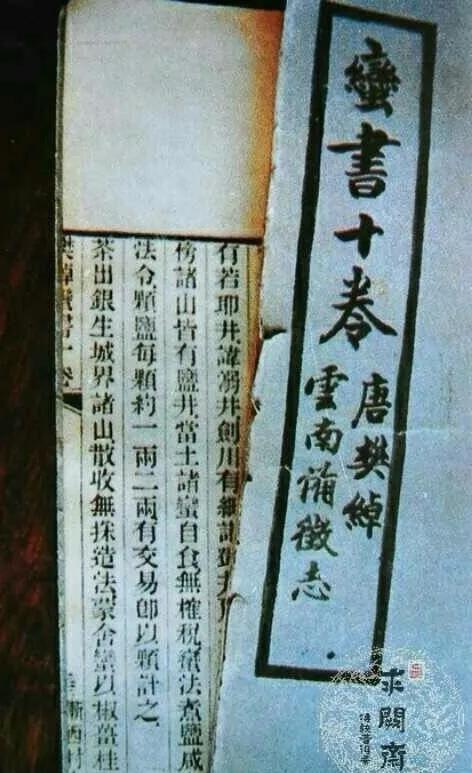 蠻書十卷
唐樊綽
雲南備徵志
有若耶井諱溺井劍川有細諾鄧井
傍諸山皆有鹽井當土諸蠻自食無榷稅蠻法煮鹽咸
法令顆鹽每顆約一兩二兩有交易卽以顆計之
茶出銀生城界諸山散收無採造法蒙舍蠻以椒薑桂
樊綽蠻書 卷
浙西村
求闕齋